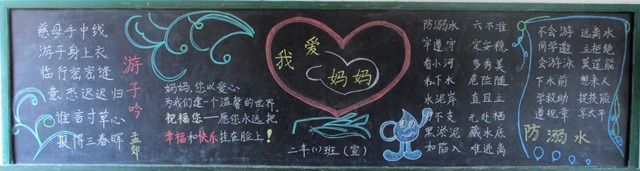 慈母手中线
游子身上衣
临行密密缝
意恐迟迟归
谁言寸草心
报得三春晖
孟郊
游子吟
妈妈，您以爱心
为我们建个温馨的世界，
祝福您——愿您永远把
幸福和快乐挂在脸上！
我爱
妈妈
二年(1)班(宣)
防溺水 六不准
牢遵守 定安稳
看小河 多秀美
私下水 危险随
水泥岸 直且立
无处牺
黑淤泥 藏水底
如陷入 难逃离
不会游 远离水
同学邀 立拒绝
会游泳 莫逞能
下水前 想亲人
学救助 提技能
遵规章 享太平
防溺水